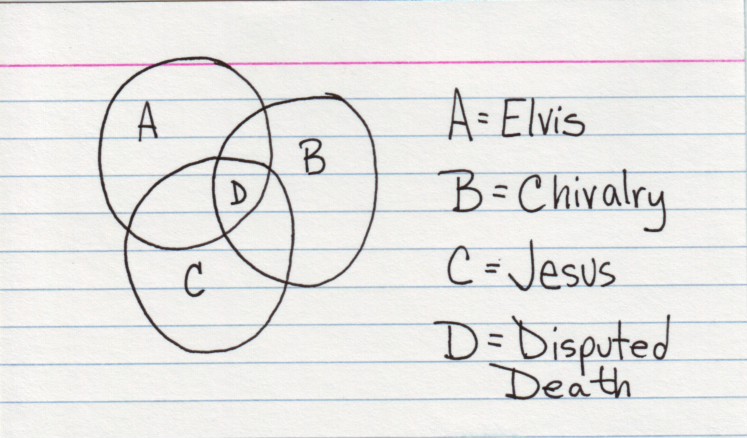 A
B
D
C
A = Elvis
B = Chivalry
C = Jesus
D = Disputed
Death